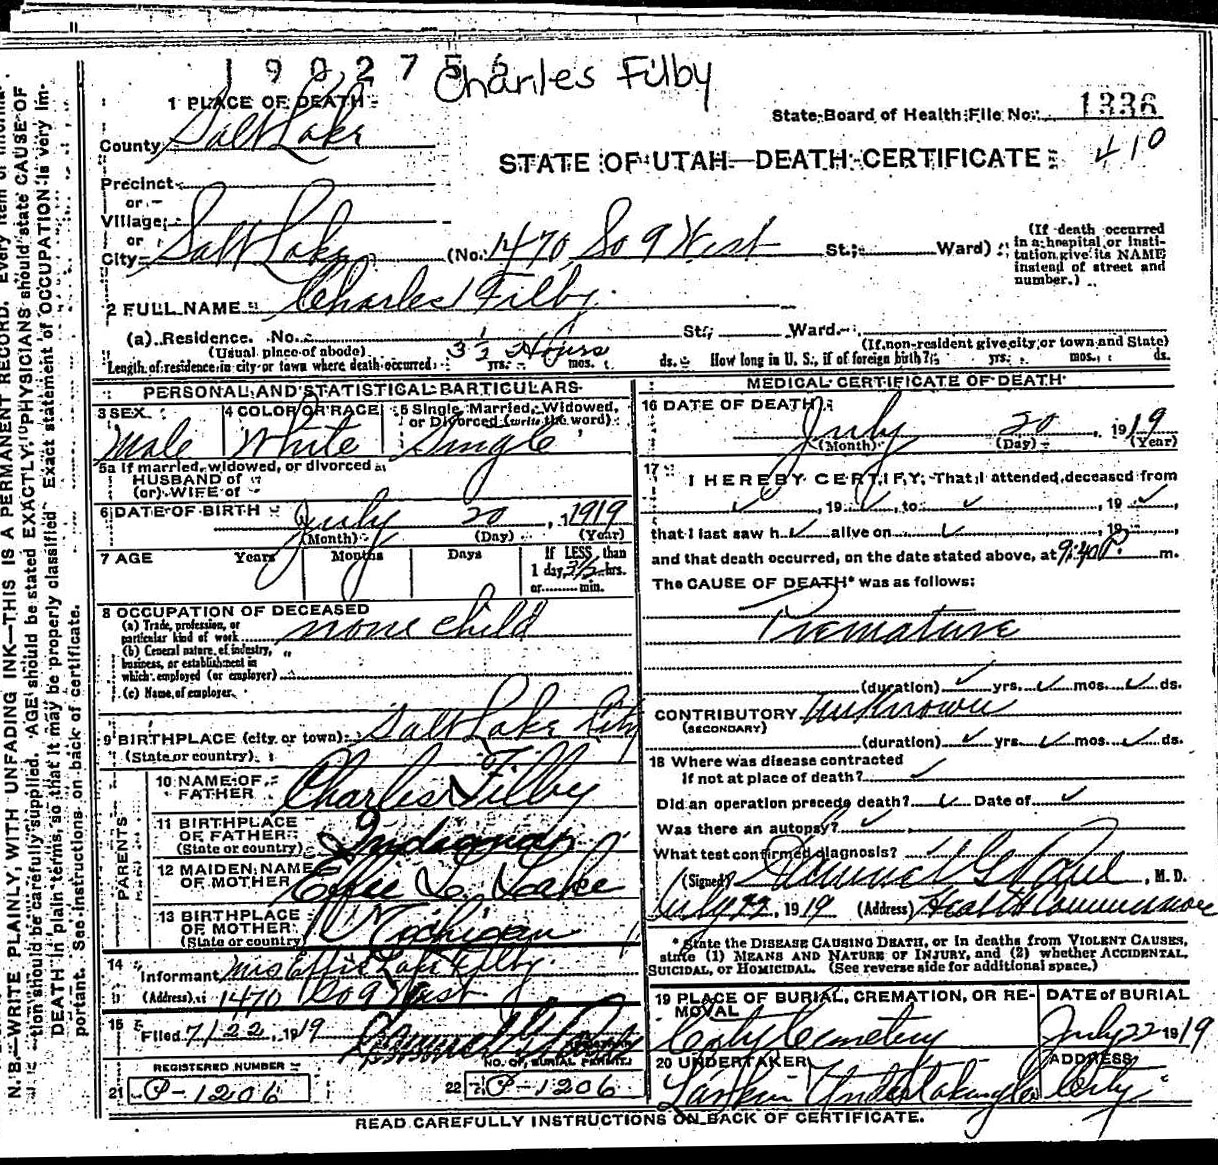 1902756
Charles Filby
1 PLACE OF DEATH
State Board of Health File No. 1336
County Salt Lake
STATE OF UTAH—DEATH CERTIFICATE
410
Precinct
or
Village
or
City Salt Lake (No. 1470 So 9 West St.; Ward)
(If death occurred in a hospital or institution, give its NAME instead of street and number.)
2 FULL NAME Charles Filby
(a) Residence. No. St., Ward.
(Usual place of abode) (If non-resident give city or town and State)
Length of residence in city or town where death occurred 3 1/2 Hours yrs. mos. ds. How long in U. S., if of foreign birth? yrs. mos. ds.
PERSONAL AND STATISTICAL PARTICULARS
3 SEX Male
4 COLOR OR RACE White
5 Single, Married, Widowed, or Divorced (write the word) Single
5a If married, widowed, or divorced
HUSBAND of
(or) WIFE of
6 DATE OF BIRTH July 20, 1919
(Month) (Day) (Year)
7 AGE Years Months Days If LESS than 1 day, 3 1/2 hrs. or min.
8 OCCUPATION OF DECEASED
(a) Trade, profession, or particular kind of work none child
(b) General nature of industry, business, or establishment in which employed (or employer)
(c) Name of employer
9 BIRTHPLACE (city or town) Salt Lake City
(State or country)
PARENTS
10 NAME OF FATHER Charles Filby
11 BIRTHPLACE OF FATHER (State or country) Indiana
12 MAIDEN NAME OF MOTHER Effie L. Lake
13 BIRTHPLACE OF MOTHER (State or country) Michigan
14 Informant Mrs Effie Filby
(Address) 1470 So 9 West
15 Filed 7/22, 1919
REGISTERED NUMBER
21 P-1206
NO. OF BURIAL PERMIT
22 P-1206
MEDICAL CERTIFICATE OF DEATH
16 DATE OF DEATH July 20, 1919
(Month) (Day) (Year)
17 I HEREBY CERTIFY, That I attended deceased from
, 19 , to , 19
that I last saw h alive on , 19
and that death occurred, on the date stated above, at 9:40 P. m.
The CAUSE OF DEATH* was as follows:
Premature
(duration) yrs. mos. ds.
CONTRIBUTORY Unknown
(SECONDARY)
(duration) yrs. mos. ds.
18 Where was disease contracted
if not at place of death?
Did an operation precede death? Date of
Was there an autopsy?
What test confirmed diagnosis?
(Signed) Samuel G. Paul, M. D.
July 22, 1919 (Address) Health Commissioner
* State the DISEASE CAUSING DEATH, or in deaths from VIOLENT CAUSES, state (1) MEANS AND NATURE OF INJURY, and (2) whether ACCIDENTAL, SUICIDAL, or HOMICIDAL. (See reverse side for additional space.)
19 PLACE OF BURIAL, CREMATION, OR REMOVAL City Cemetery
DATE of BURIAL July 22 1919
20 UNDERTAKER Larkin Undertaking Co
ADDRESS City
READ CAREFULLY INSTRUCTIONS ON BACK OF CERTIFICATE.
N. B.—WRITE PLAINLY, WITH UNFADING INK—THIS IS A PERMANENT RECORD. Every item of
tion should be carefully supplied. AGE should be stated EXACTLY. PHYSICIANS should state CAUSE OF
DEATH in plain terms, so that it may be properly classified. Exact statement of OCCUPATION is very im-
portant. See instructions on back of certificate.